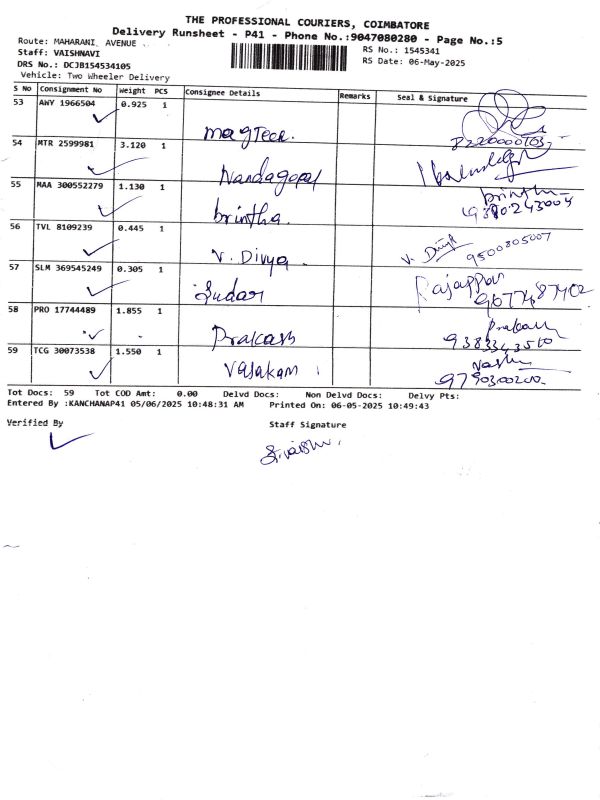 THE PROFESSIONAL COURIERS, COIMBATORE
Delivery Runsheet - P41 - Phone No.:9047080280 - Page No.:5
Route: MAHARANI AVENUE
RS No.: 1545341
Staff: VAISHNAVI
RS Date: 06-May-2025
DRS No.: DCJB154534105
Vehicle: Two Wheeler Delivery
S No Consignment No Weight PCS Consignee Details Remarks Seal & Signature
53 AWY 1966504 0.925 1
54 MTR 2599981 3.120 1
Nandagopal
55 MAA 300552279 1.130 1 brintha
brintha
56 TVL 8109239 0.445 1 V. Divya
V. Divya 9500805007
57 SLM 369545249 0.305 1
58 PRO 17744489 1.855 1 Prakash
Prakash
59 TCG 30073538 1.550 1
9790300200
Tot Docs: 59 Tot COD Amt: 0.00 Delvd Docs: Non Delvd Docs: Delvy Pts:
Entered By :KANCHANAP41 05/06/2025 10:48:31 AM Printed On: 06-05-2025 10:49:43
Verified By Staff Signature